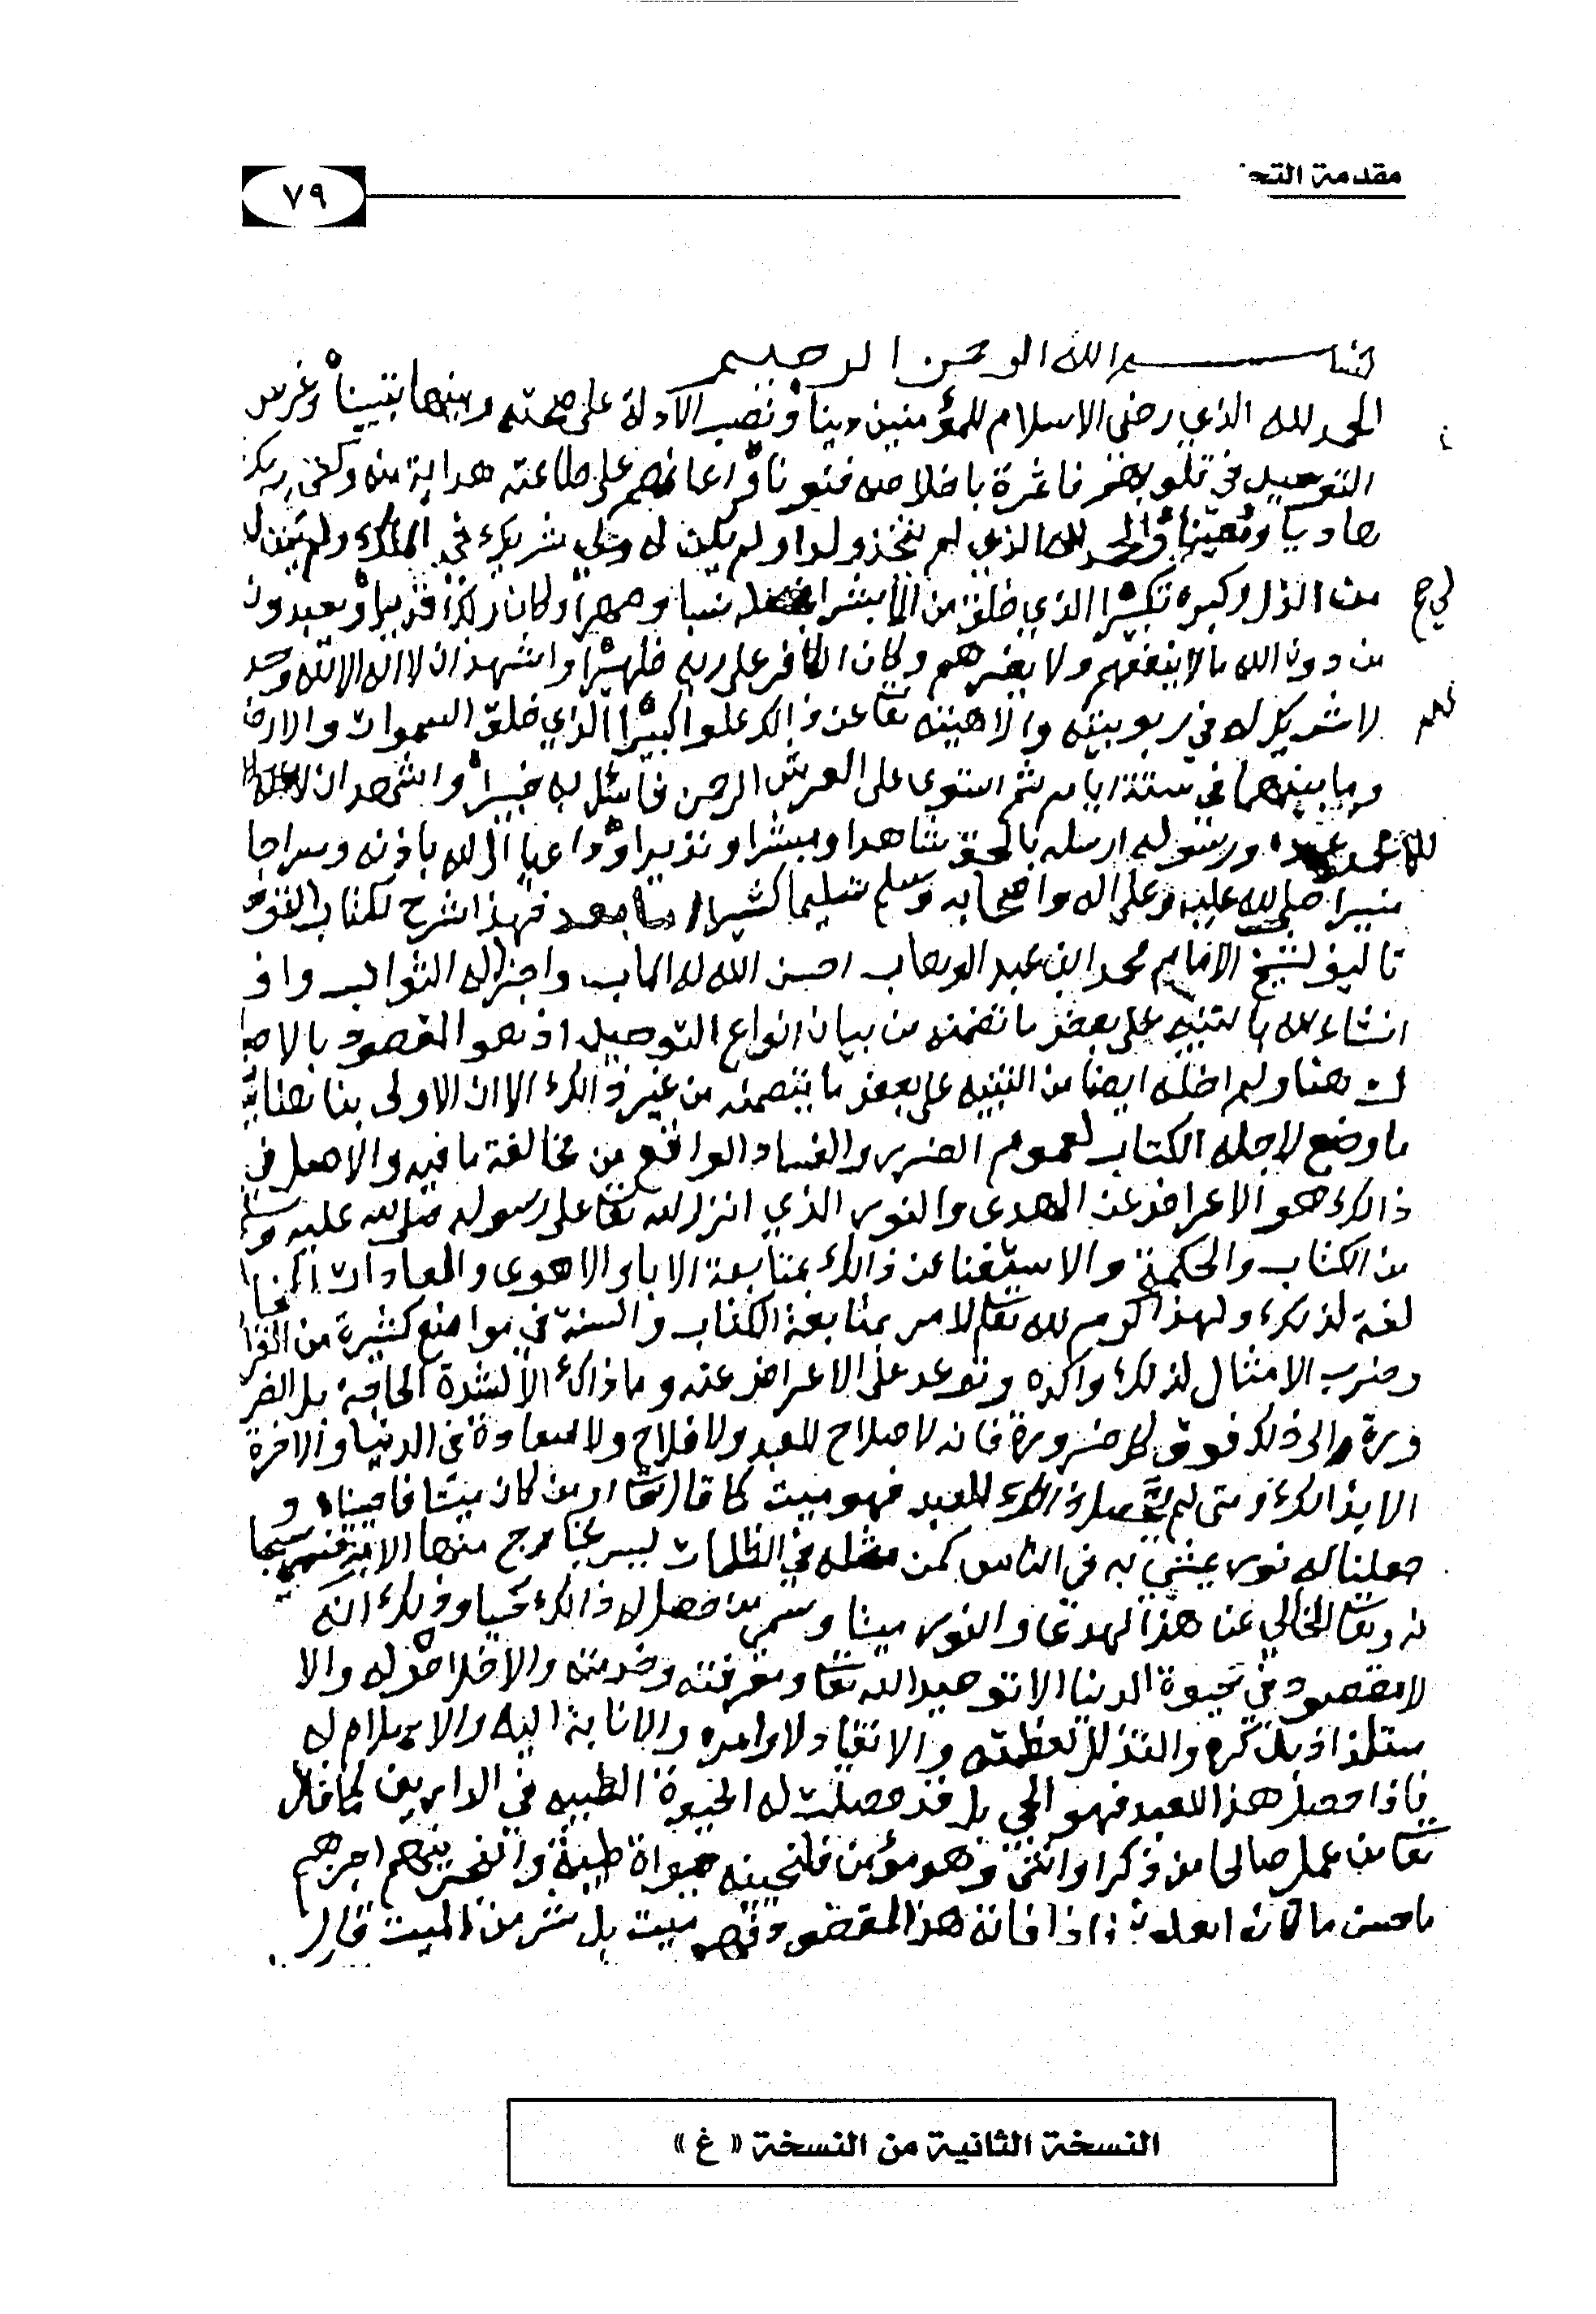 مقدمة التح
٧٩
بسم الله الرحمن الرحيم
الحمد لله الذي رضي الاسلام للمؤمنين دينا ونصب الادلة على صحته وبينها تبيينا وغرس
التوحيد في قلوبهم فاثمرة باخلاصه فنونا واعانهم على طاعته هداية منه وكفى بربك
هاديا ومعينا والحمد لله الذي لم يتخذ ولدا ولم يكن له شريك في الملك ولم يكن ل
من الذل وكبره تكبيرا الذي خلق من الما بشرا فجعله نسبا وصهرا وكان ربك قديرا ويعبدون
من دون الله مالا ينفعهم ولا يضرهم وكان الكافر على ربه ظهيرا واشهد ان لا اله الا الله وحد
لا شريك له في ربوبيته والاهيته تعا عن ذالك علوا كبيرا الذي خلق السموات والارض
وما بينهما في ستة ايام ثم استوى على العرش الرحمن فاسئل به خبيرا واشهد ان
عبده ورسوله ارسله بالحق شاهدا ومبشرا ونذيرا وداعيا الى الله باذنه وسراجا
منيرا صلى الله عليه وعلى اله واصحابه وسلم تسليما كثيرا اما بعد فهذا شرح لكتاب التو
تاليف لشيخ الامام محمد ابن عبد الوهاب احسن الله له الماب واجزل له الثواب واف
انشاء الله بالتنبيه على بعض ما تضمنه من بيان انواع التوحيد اذ هو المقصود بالاصا
لت هنا ولم اخله ايضا من التنبيه على بعض ما يتضمنه من غير ذالك الا ان الاولى بنا هنا
ما وضع لاجله الكتاب لعموم الضرر والفساد الواقع من مخالفة ما فيه والاصل في
ذالك هو الاعراض عن الهدى والنور الذي انزل الله تعا على رسوله صلى الله عليه وسلم
من الكتاب والحكمة والاستغنا عن ذالك بمتابعة الابا والاهوى والعادات المخا
لفة لذلك ولهذا كرر الله تعا الامر بمتابعة الكتاب والسنة في مواضع كثيرة من القرا
وضرب الامثال لذلك واكده وتوعد على الاعراض عنه وما ذاك الا لشدة الحاجة بل الضر
ورة الى ذلك فوق كل ضرورة فانه لا صلاح للعبد ولا فلاح ولا سعادة في الدنيا والاخرة
الا بذالك ومتى لم يحصل ذالك للعبد فهو ميت كما قال تعا او من كان ميتا فاحيناه و
جعلنا له نور يمشي به في الناس كمن مثله في الظلمات ليس بخارج منها الاية فسمى سبحا
نه وتعا الخالي عن هذا الهدى والنور ميتا وسمى من حصل له ذالك حيا وذلك انه
لا مقصود في حيوة الدنيا الا توحيد الله تعا ومعرفته وخدمته والاخلاص له والا
ستلذاذ بذكره والتذلل لعظمته والانقياد لاوامره والانابة اليه والاسلام له
فاذا حصل هذا للعبد فهو الحي بل قد حصلت له الحيوة الطيبه في الدارين كما قال
تعا من عمل صالحا من ذكر او انثى وهو مؤمن فلنحيينه حيواة طيبة ولنجزينهم اجرهم
باحسن ما كانو اذا فاته هذا المقصود فهو ميت بل شر من الميت قال
النسخة الثانية من النسخة « غ »